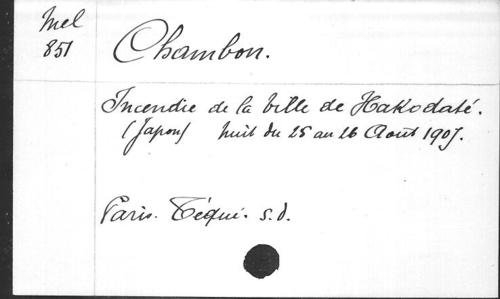 Mel
851
Chambon.
Incendie de la Ville de Hakodaté.
(Japon) Nuit du 25 au 26 Août 1907.
Paris. Téqui. s.d.